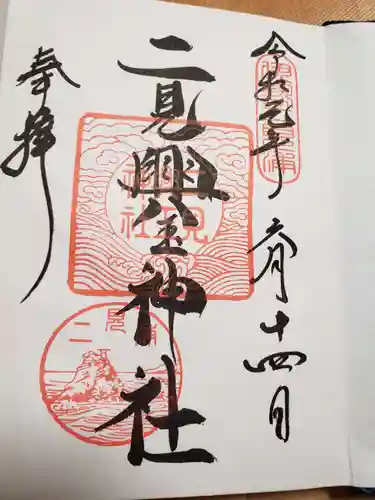 令和元年
六月十四日
二見興玉神社
奉拝
二見
興玉
神社